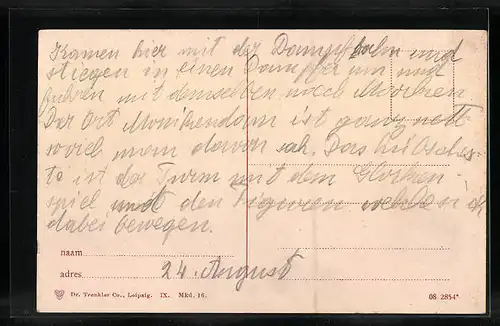 Kamen hier mit der Dampfbahn und
stiegen in einen Dampfer um und
fuhren mit demselben nach Marken.
Der Ort Monikendam ist ganz nett
soviel man davon sah. Das hübsches-
te ist der Turm mit dem Glocken-
spiel und den Figuren welche sich
dabei bewegen.
naam
adres 24. August
Dr. Trenkler Co., Leipzig. IX. Mkd. 16.
08 2854*